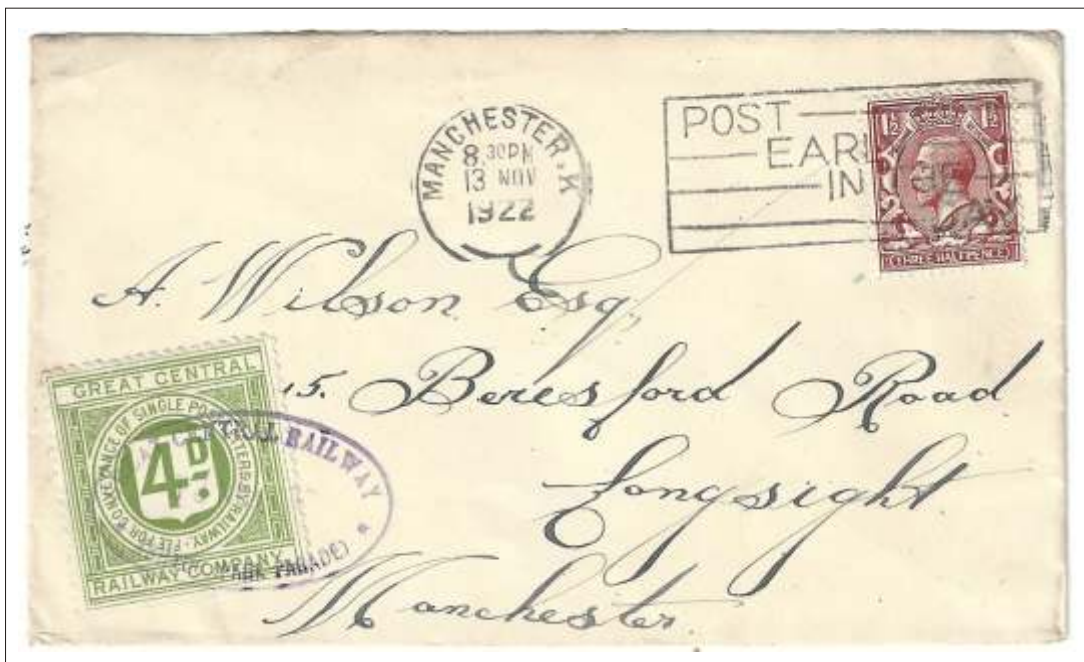 MANCHESTER.K
8.30PM
13 NOV
1922
POST
EARL
IN
1½ 1½
THREE HALFPENCE
A. Wilson Esq,
15. Beresford Road
Longsight
Manchester.
GREAT CENTRAL
FEE FOR CONVEYANCE OF SINGLE POST LETTERS BY RAILWAY
4D.
RAILWAY COMPANY
RAILWAY
PARADE)